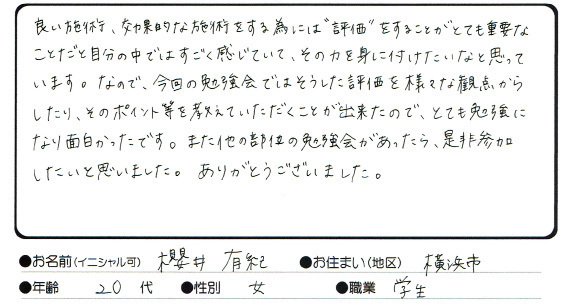 良い施術、効果的な施術をする為には"評価"をすることがとても重要な
ことだと自分の中ではすごく感じていて、その力を身に付けたいなと思って
います。なので、今回の勉強会ではそうした評価を様々な観点から
したり、そのポイント等を教えていただくことが出来たので、とても勉強に
なり面白かったです。また他の部位の勉強会があったら、是非参加
したいと思いました。ありがとうございました。
●お名前(イニシャル可) 櫻井 有紀 ●お住まい(地区) 横浜市
●年齢 20 代 ●性別 女 ●職業 学生